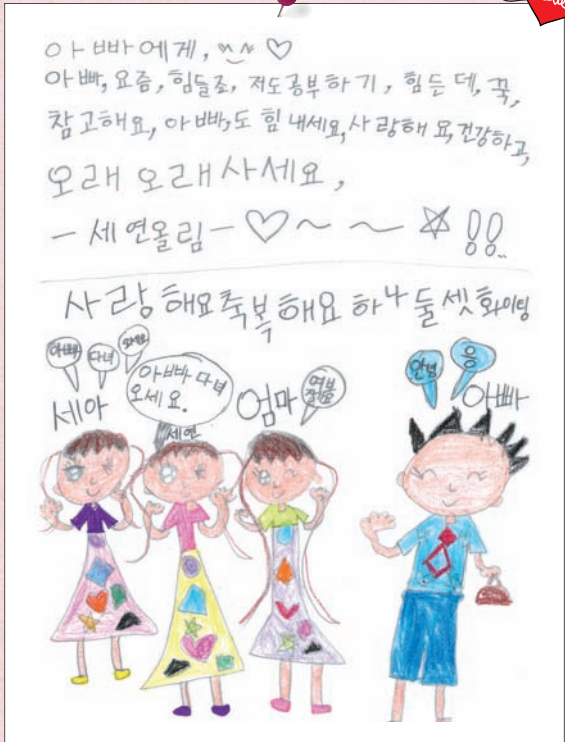 아빠에게, ^^ ♡
아빠, 요즘, 힘들죠, 저도공부하기, 힘든데, 꾹,
참고해요, 아빠,도 힘내세요,사랑해요,건강하고,
오래 오래사세요,
- 세연올림-♡~ ~ ☆!!
사랑해요축복해요 하나둘셋화이팅
아빠
다녀
오세요
아빠 다녀
오세요.
여보
안녕
응
세아
세연
엄마
아빠